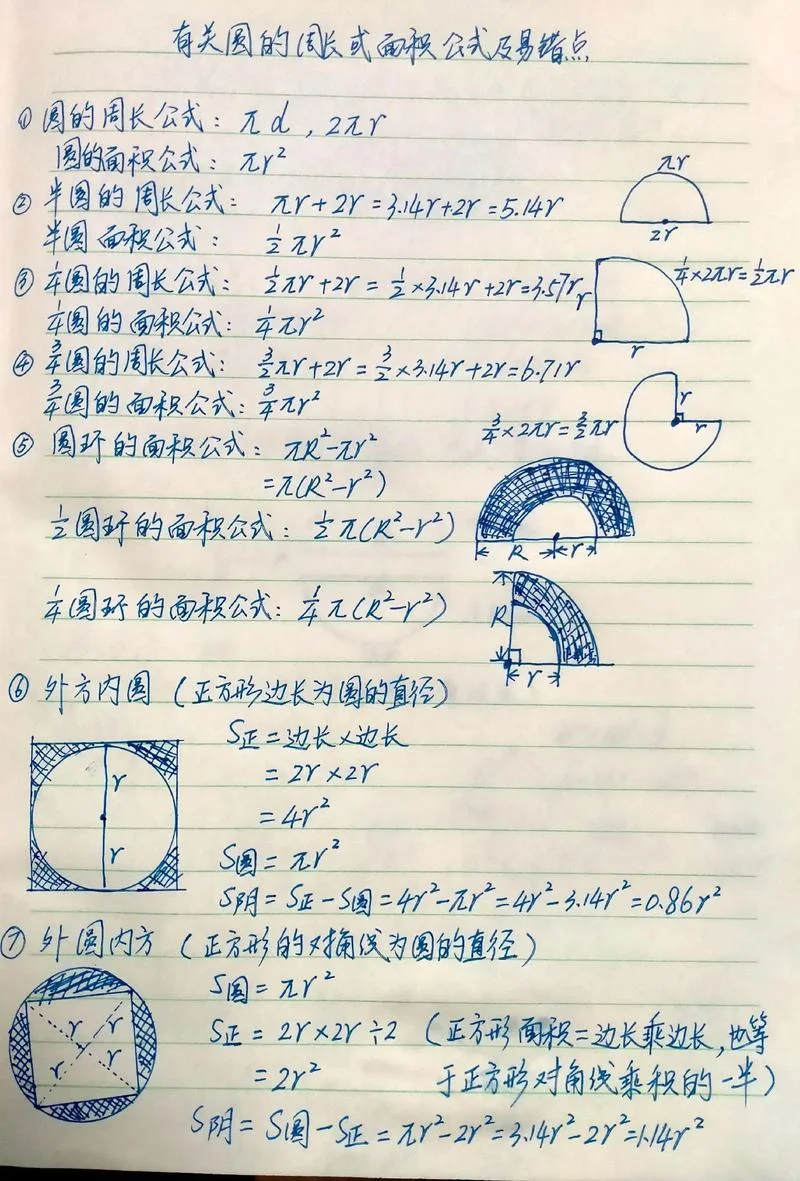 有关圆的周长或面积公式及易错点
① 圆的周长公式：πd，2πr
圆的面积公式：πr²
πr
② 半圆的周长公式：πr+2r=3.14r+2r=5.14r
2r
半圆面积公式：½πr²
③ ¼圆的周长公式：½πr+2r=½×3.14r+2r=3.57r
r
¼×2πr=½πr
¼圆的面积公式：¼πr²
r
④ ¾圆的周长公式：3/2πr+2r=3/2×3.14r+2r=6.71r
¾圆的面积公式：¾πr²
r
r
¾×2πr=3/2πr
⑤ 圆环的面积公式：πR²-πr²
=π(R²-r²)
½圆环的面积公式：½π(R²-r²)
R r
¼圆环的面积公式：¼π(R²-r²)
R
r
⑥ 外方内圆（正方形边长为圆的直径）
S正=边长×边长
=2r×2r
=4r²
r
r
S圆=πr²
S阴=S正-S圆=4r²-πr²=4r²-3.14r²=0.86r²
⑦ 外圆内方（正方形的对角线为圆的直径）
S圆=πr²
r r
r r
S正=2r×2r÷2（正方形面积=边长乘边长，也等
=2r² 于正方形对角线乘积的一半）
S阴=S圆-S正=πr²-2r²=3.14r²-2r²=1.14r²